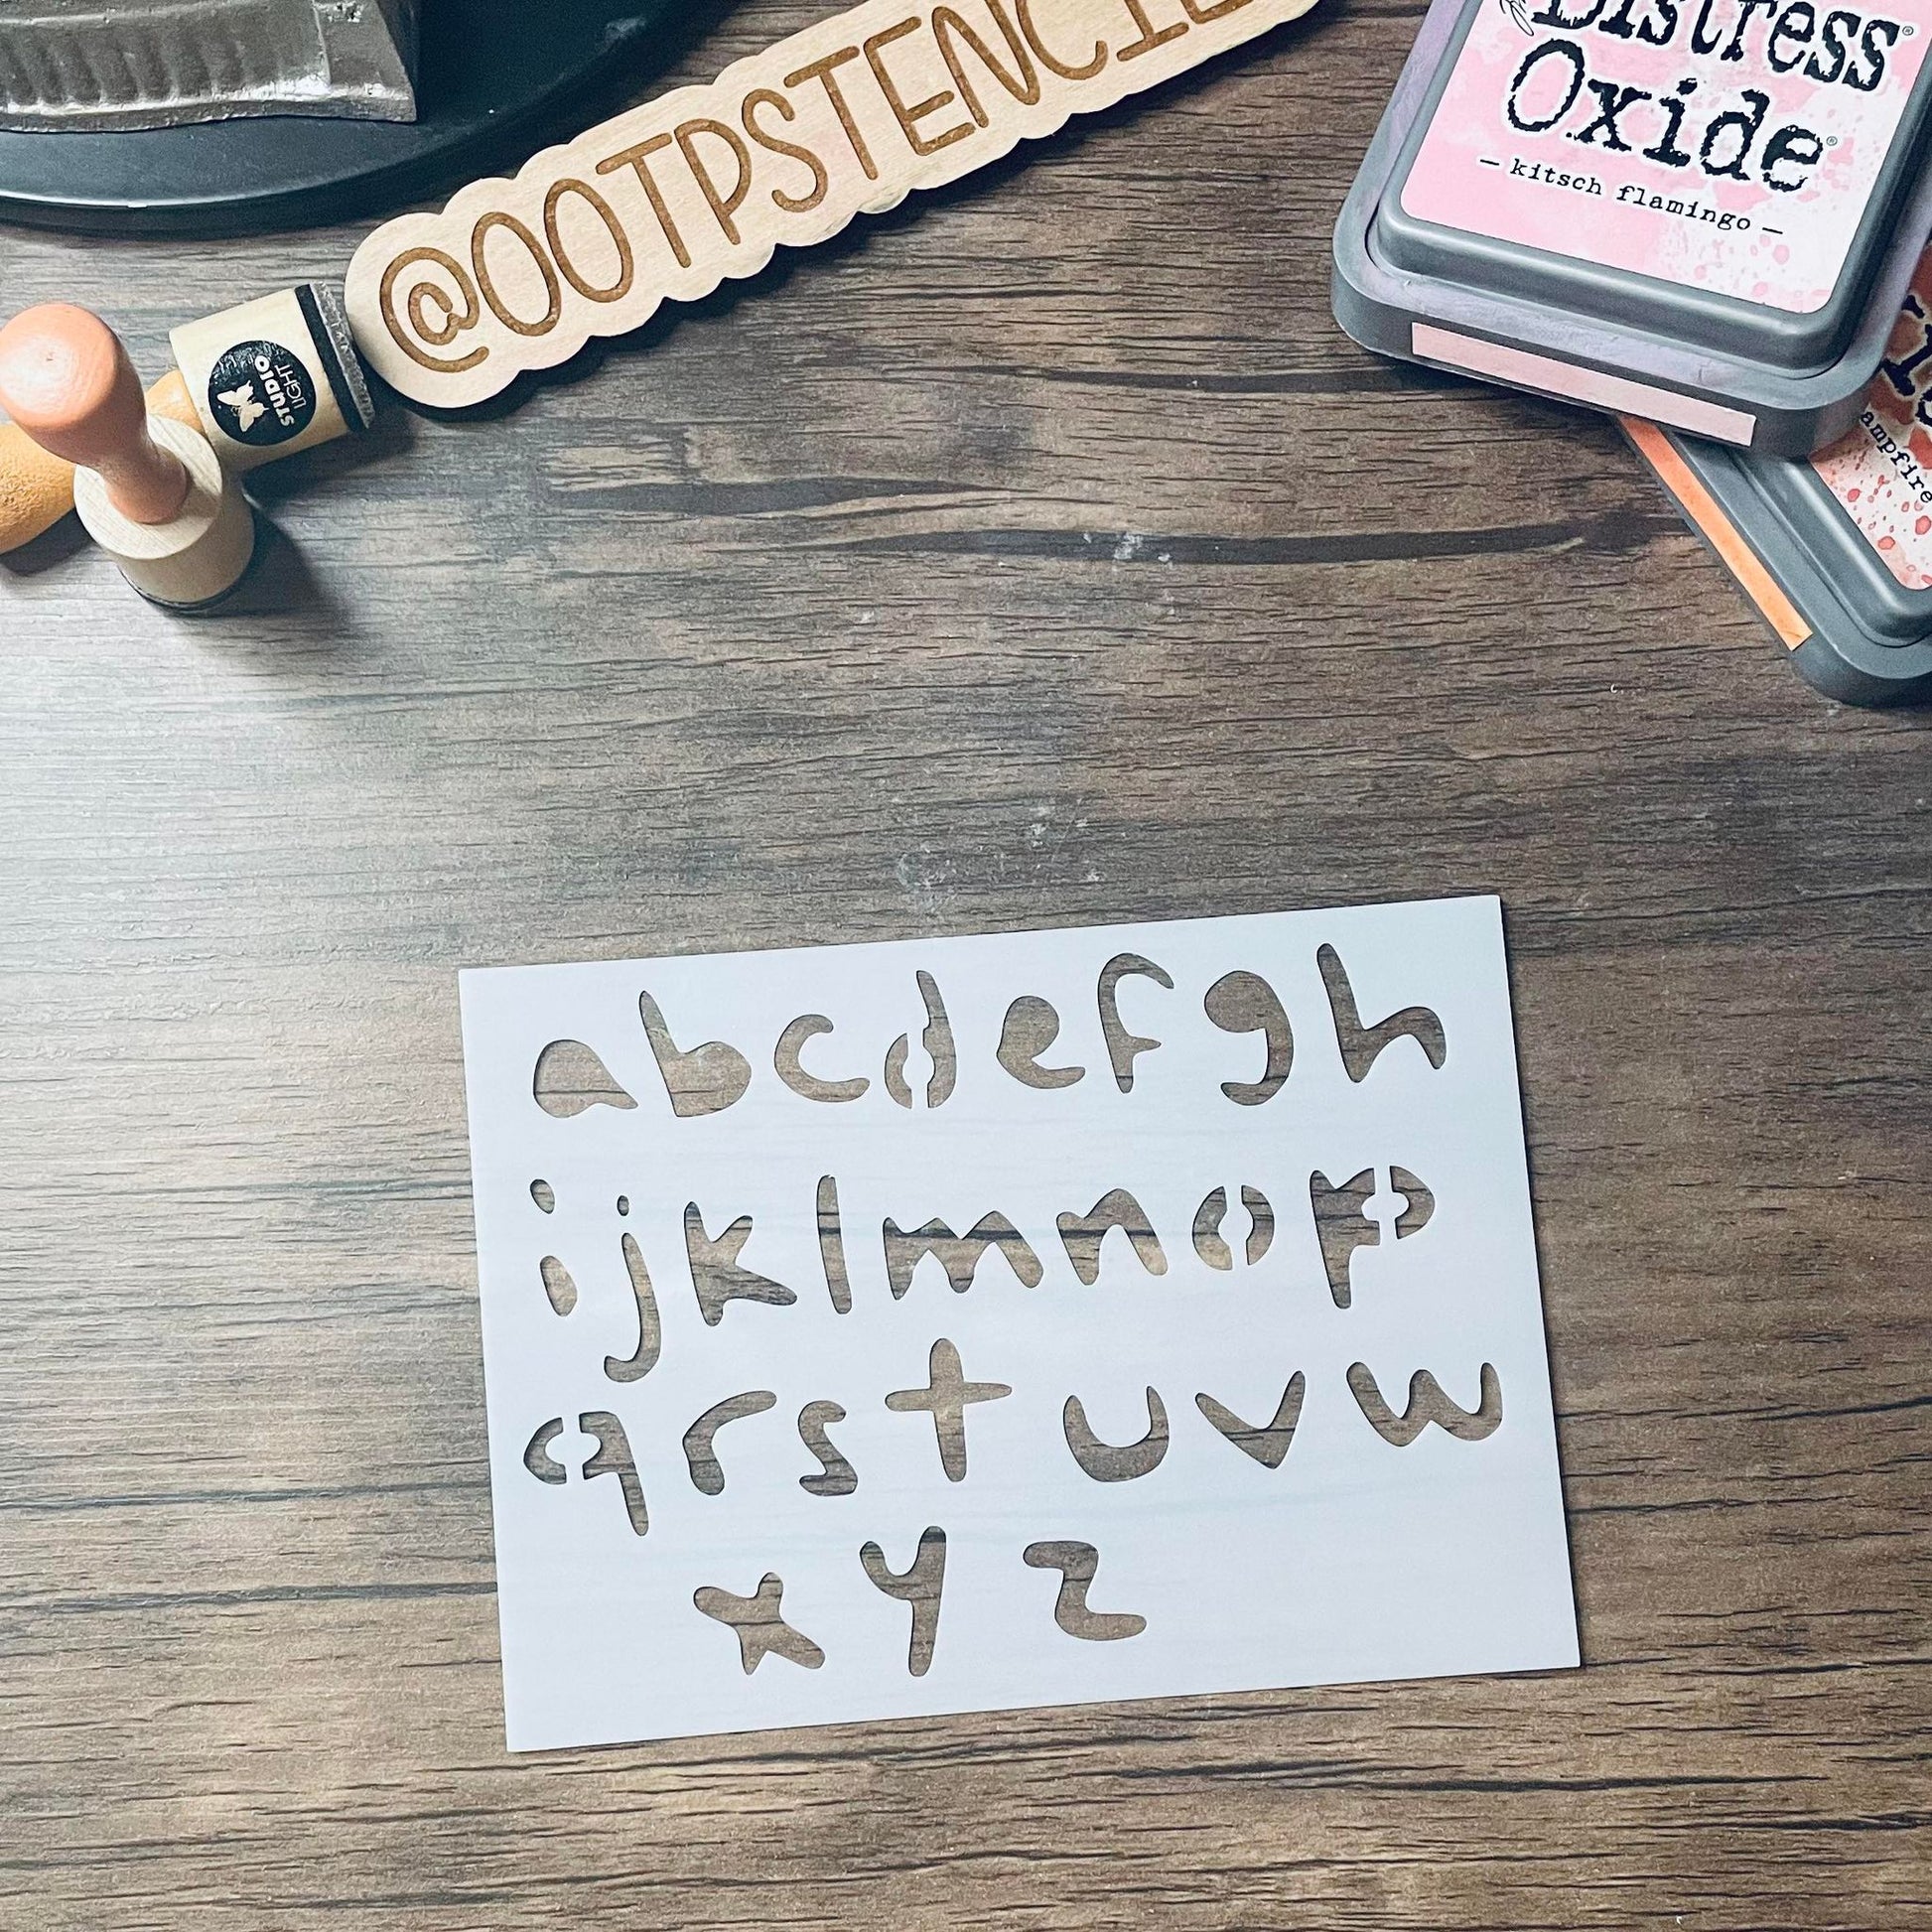 @OOTPSTENCIL
Distress
Oxide
— kitsch flamingo —
STUDIO
LIGHT
ampfire
abcdefgh
ijklmnop
qrstuvw
xyz